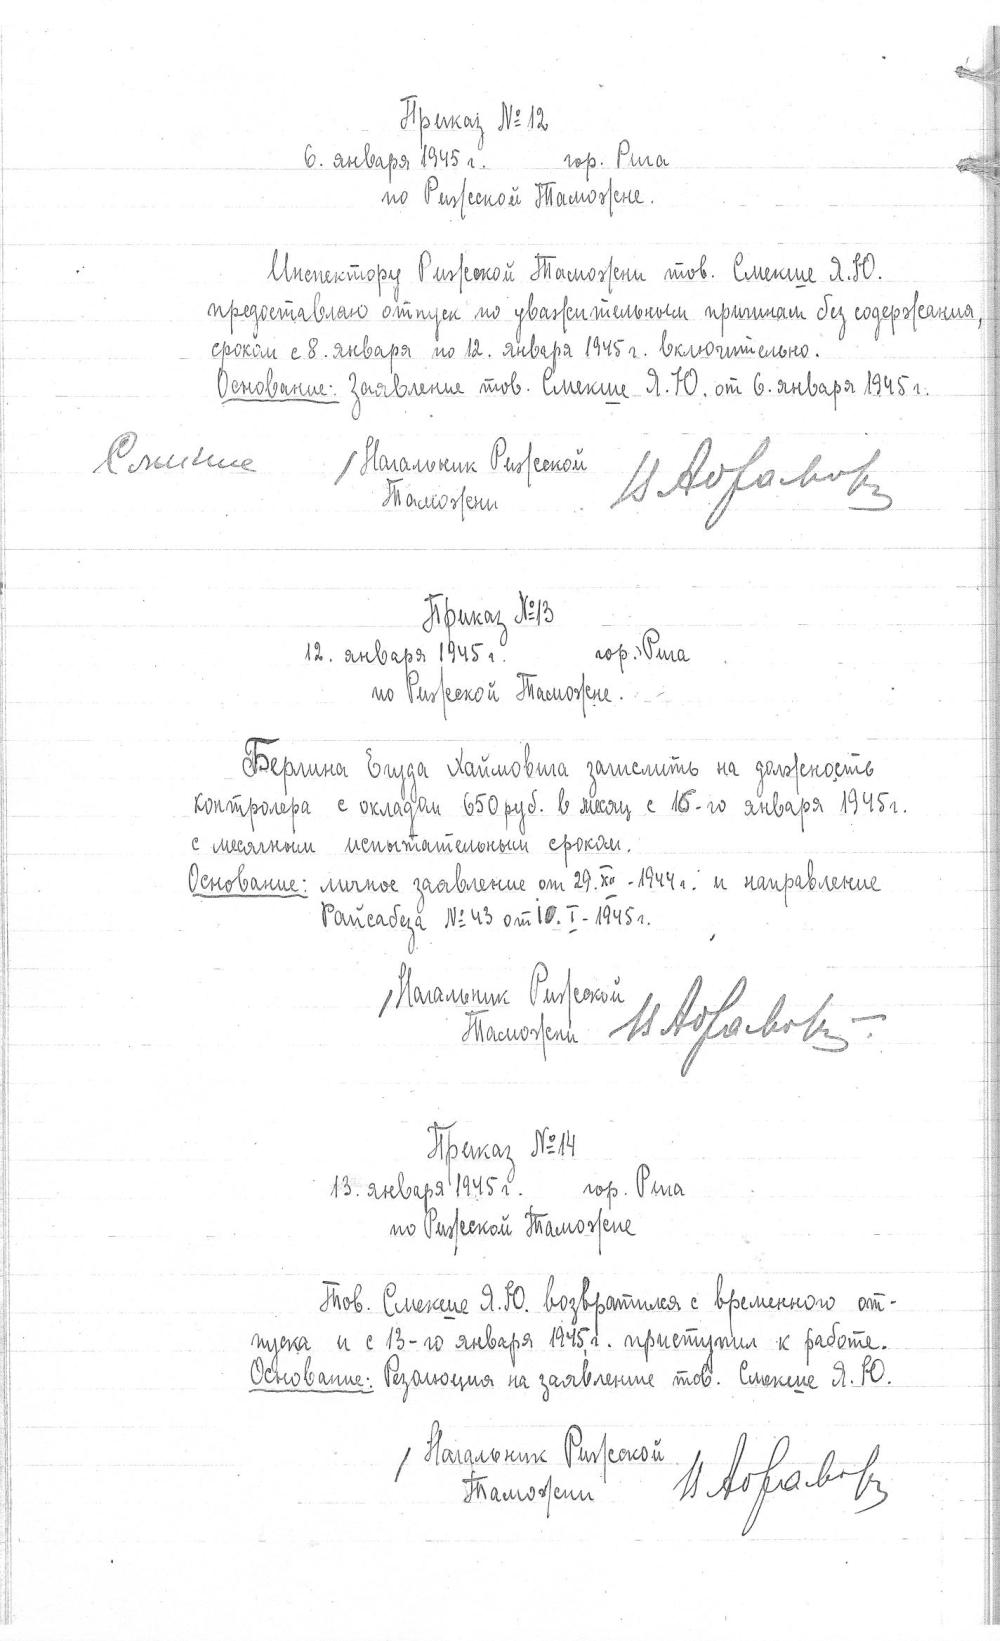 Приказ №12
6. января 1945 г. гор. Рига
по Рижской Таможне.
Инспектору Рижской Таможни тов. Смекше Я.Ю.
предоставлаю отпуск по уважительным причинам без содержания,
сроком с 8. января по 12. января 1945 г. включительно.
Основание: Заявление тов. Смекше Я.Ю. от 6. января 1945 г.
Начальник Рижской
Таможни
Приказ №13
12. января 1945 г. гор. Рига
по Рижской Таможне.
Берлина Егуда Хаймовича зачислить на должность
контролера с окладом 650 руб. в месяц с 15-го января 1945 г.
с месячным испытательным сроком.
Основание: личное заявление от 29.XII-1944 г. и направление
Райсабеза №43 от 10.I-1945 г.
Начальник Рижской
Таможни
Приказ №14
13. января 1945 г. гор. Рига
по Рижской Таможне
Тов. Смекше Я.Ю. возвратился с временного от-
пуска и с 13-го января 1945 г. приступил к работе.
Основание: Резолюция на заявление тов. Смекше Я.Ю.
Начальник Рижской
Таможни